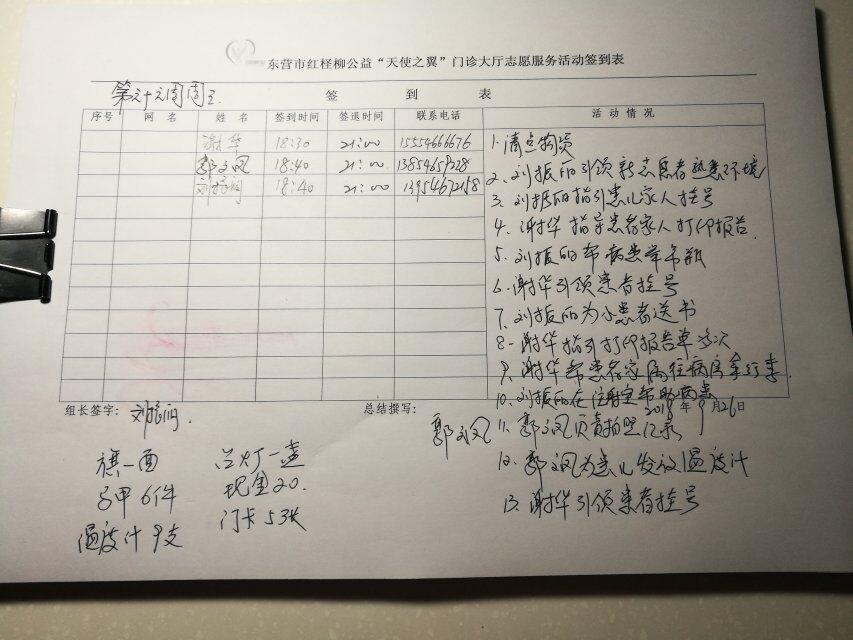 东营市红柽柳公益“天使之翼”门诊大厅志愿服务活动签到表
第六十六周周三
签 到 表
序号 网名 姓名 签到时间 签退时间 联系电话 活动情况
谢华 18:30 21:00 15554666676
郭文凤 18:40 21:00
18:40 21:00
1. 清点物资
2. 刘振丽引领新志愿者熟悉环境
3. 刘振丽指引患儿家人挂号
4. 谢华指导患者家人打印报告
5. 刘振丽帮病患拿吊瓶
6. 谢华引领患者挂号
7. 刘振丽为小患者送书
8. 谢华指引打印报告单多次
9. 谢华帮患者家属往病房拿行李
10. 刘振丽在注射室帮助病患
11. 郭文凤负责拍照记录
12. 郭文凤为患儿发放温度计
13. 谢华引领患者挂号
组长签字: 总结撰写: 郭文凤 2018年9月26日
旗一面 台灯一盏
马甲6件 现金20.
温度计9支 门卡53张